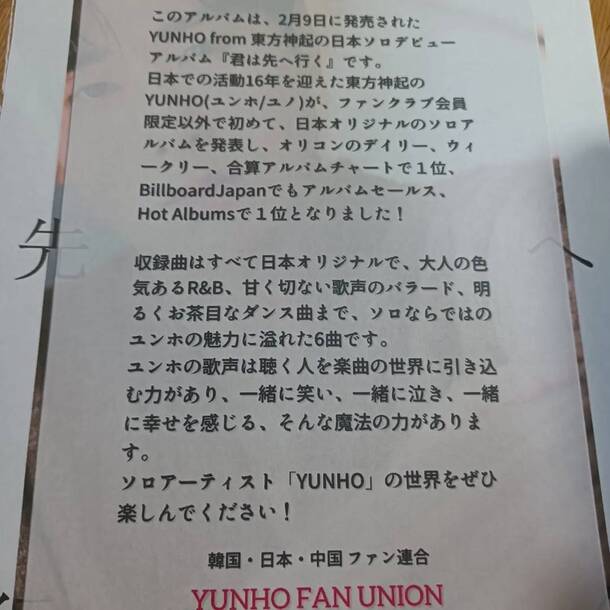 このアルバムは、2月9日に発売された
YUNHO from 東方神起の日本ソロデビュー
アルバム『君は先へ行く』です。
日本での活動16年を迎えた東方神起の
YUNHO(ユンホ/ユノ)が、ファンクラブ会員
限定以外で初めて、日本オリジナルのソロア
ルバムを発表し、オリコンのデイリー、ウィ
ークリー、合算アルバムチャートで１位、
BillboardJapanでもアルバムセールス、
Hot Albumsで１位となりました！
先
へ
収録曲はすべて日本オリジナルで、大人の色
気あるR&B、甘く切ない歌声のバラード、明
るくお茶目なダンス曲まで、ソロならではの
ユンホの魅力に溢れた6曲です。
ユンホの歌声は聴く人を楽曲の世界に引き込
む力があり、一緒に笑い、一緒に泣き、一緒
に幸せを感じる、そんな魔法の力がありま
す。
ソロアーティスト「YUNHO」の世界をぜひ
楽しんでください！
韓国・日本・中国 ファン連合
YUNHO FAN UNION